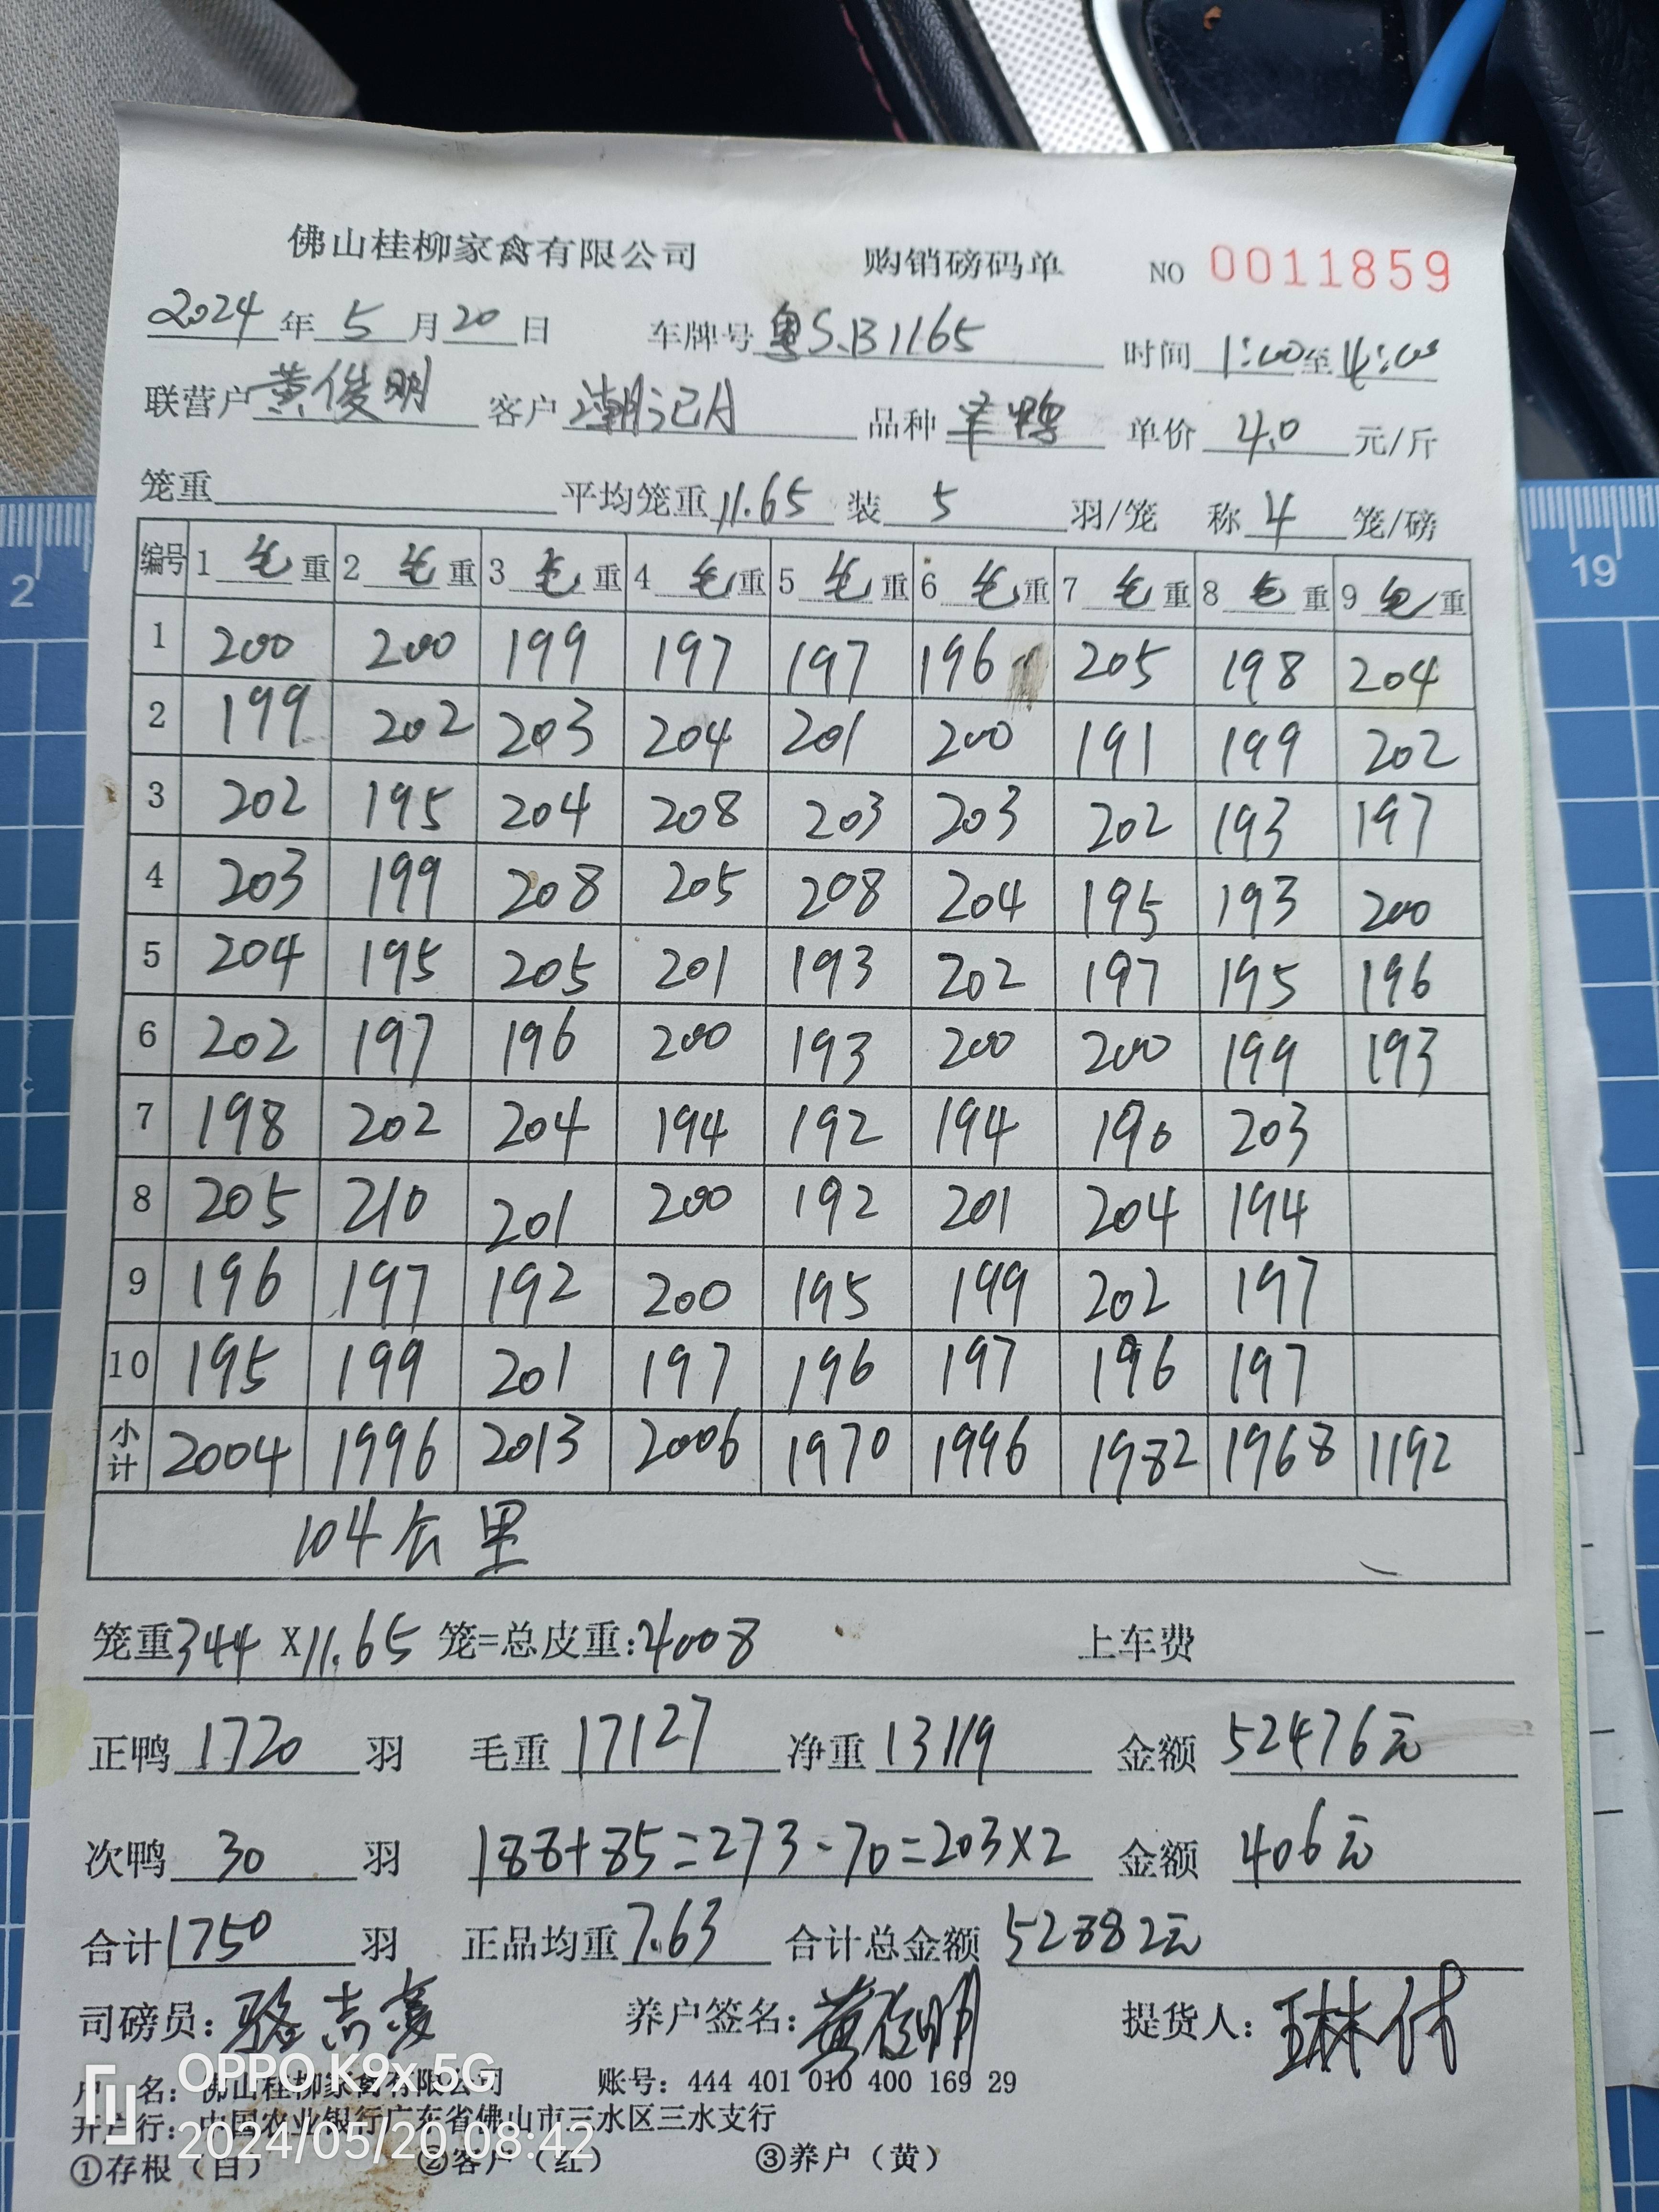 佛山桂柳家禽有限公司 购销磅码单 NO 0011859
2024年5月20日 车牌号粤S.B1165 时间1:00至4:00
联营户黄俊明 客户潮记A 品种 单价4.0元/斤
笼重 平均笼重11.65 装5羽/笼 称4笼/磅
编号 1毛重 2毛重 3毛重 4毛重 5毛重 6毛重 7毛重 8毛重 9毛重
1 200 200 199 197 197 196 205 198 204
2 199 202 203 204 201 200 191 199 202
3 202 195 204 208 203 203 202 193 197
4 203 199 208 205 208 204 195 193 200
5 204 195 205 201 193 202 197 195 196
6 202 197 196 200 193 200 200 199 193
7 198 202 204 194 192 194 190 203
8 205 210 201 200 192 201 204 194
9 196 197 192 200 195 199 202 197
10 195 199 201 197 196 197 196 197
小计 2004 1996 2013 2006 1970 1996 1982 1968 1192
104公里
笼重344X11.65笼=总皮重:4008 上车费
正鸭1720羽 毛重17127 净重13119 金额52476元
次鸭30羽 188+85=273-70=203×2 金额406元
合计1750羽 正品均重7.63 合计总金额52882元
司磅员: 养户签名:黄俊明 提货人:
户名:佛山桂柳家禽有限公司 账号:444 401 010 400 169 29
开户行:中国农业银行广东省佛山市三水区三水支行
①存根(白) ②客户(红) ③养户(黄)
OPPO K9x 5G
2024/05/20 08:42
2
19